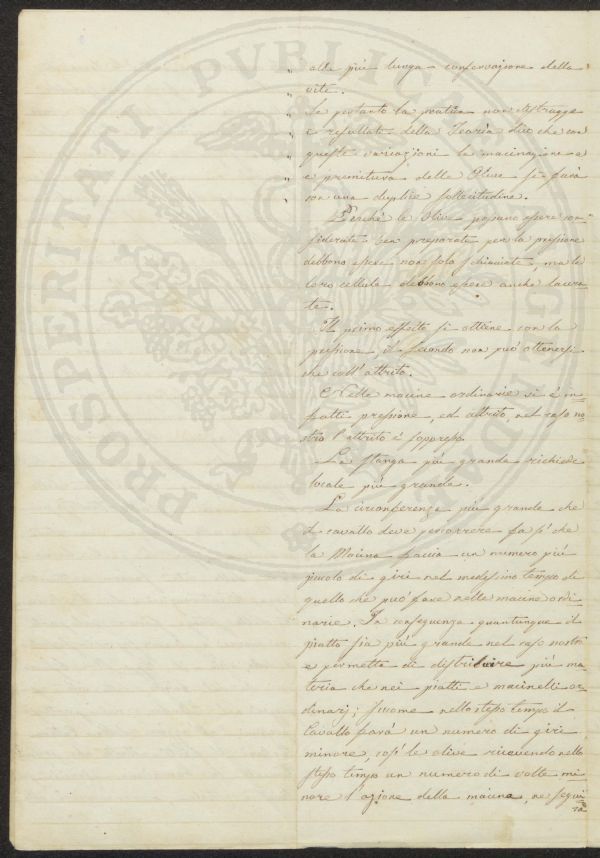 alla più lunga conservazione della
vite.
Se pertanto la pratica non distrugge
e resultati della Teoria dico che con
queste variazioni la macinazione e
e premitura delle Olive si farà
con una duplice sollecitudine.
Perchè le Olive possano essere con=
siderate ben preparate per la pressione
debbono essere non solo schiacciate, ma le
loro cellule debbono essere anche lacera-
te.
Il primo effetto si ottiene con la
pressione, il secondo non può ottenersi
che coll'attrito.
Nelle macine ordinarie vi è in=
fatti pressione, ed attrito, nel caso no=
stro l'attrito è soppresso.
La stanga più grande richiede
locale più grande.
La circonferenza più grande che
il cavallo deve percorrere fa sì che
la Macina faccia un numero più
piccolo di giri nel medesimo tempo di
quello che può fare nelle macine ordi
narie. In conseguenza quantunque il
piatto sia più grande nel caso nostro
e permetta di distribuire più ma
teria che nei piatti e macinelli or
dinarj; siccome nello stesso tempo il
Cavallo farà un numero di giri
minore, così le olive ricevendo nello
stesso tempo un numero di volte mi
nore l'azione della macina, ne segui
rà
PROSPERITATI PVBLICAE